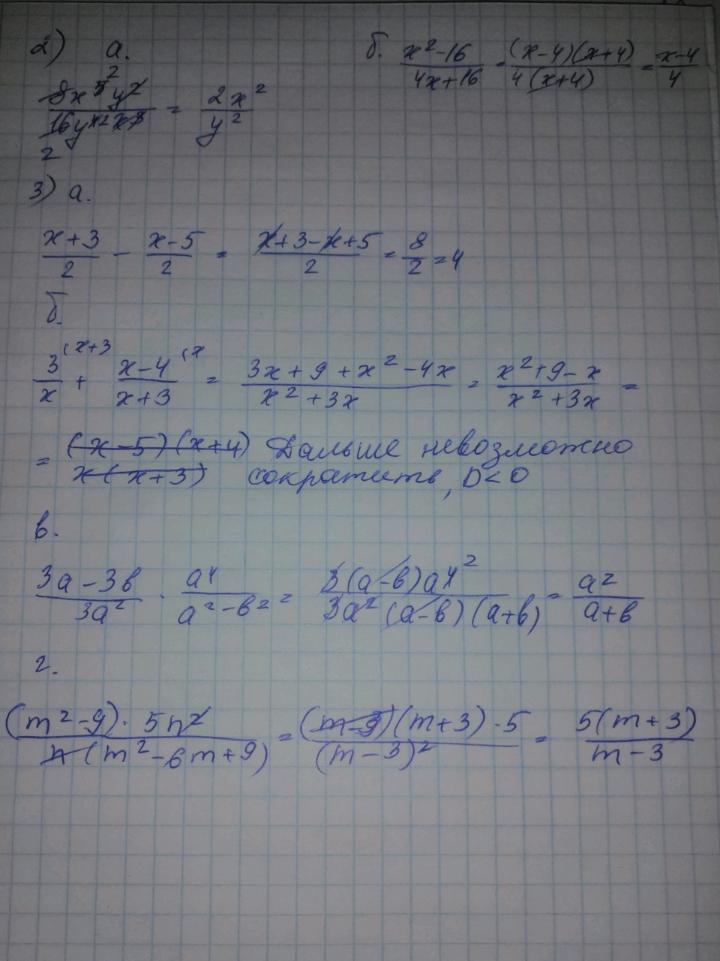 2) а.
8x⁵y² / 16y⁴x³ = 2x² / y²
2
б. x²-16 / 4x+16 = (x-4)(x+4) / 4(x+4) = x-4 / 4
3) а.
x+3 / 2 - x-5 / 2 = x+3-x+5 / 2 = 8 / 2 = 4
б.
3 (x+3 / x + x-4 (x / x+3 = 3x+9+x²-4x / x²+3x = x²+9-x / x²+3x =
= (x-5)(x+4) / x(x+3) Дальше невозможно
сократить, D<0
в.
3a-3b / 3a² · a⁴ / a²-b² = 3(a-b)a⁴ ² / 3a²(a-b)(a+b) = a² / a+b
г.
(m²-9)·5n² / n(m²-6m+9) = (m-3)(m+3)·5 / (m-3)² = 5(m+3) / m-3